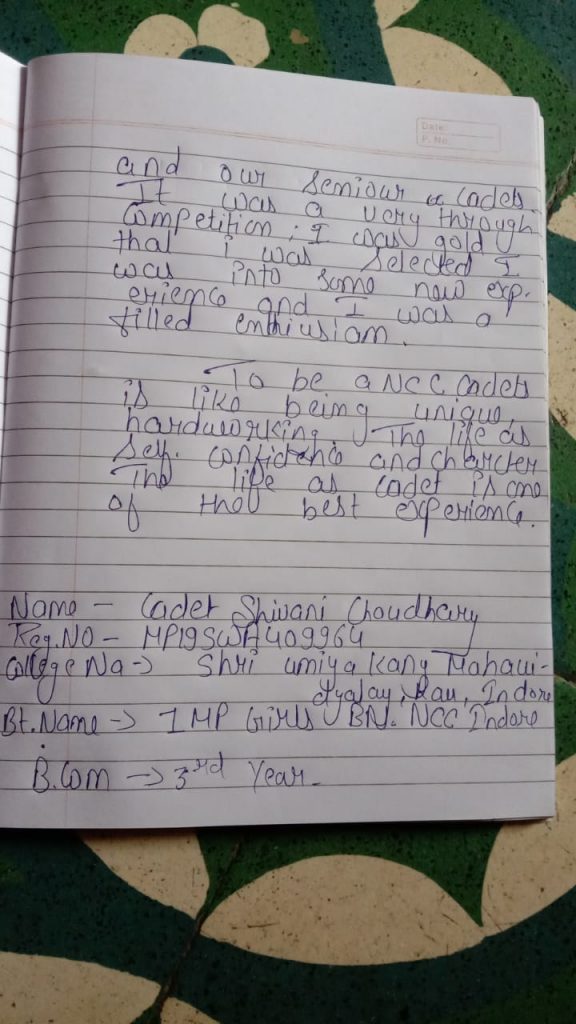 Date:
P. No.
and our Semiour & Cadets.
It was a very through
Competition; I was gold
that i was Selected I
was into some new exp.
erience and I was a
filled enthiusiam.
To be a NCC Cadets
is like being unique,
hardworking. The life as
Self. confidence and charcter
The life as cadet is one
of the best experience.
Name - Cadet Shivani Choudhary
Reg.NO - MP19SWA409964
College Na -> Shri umiya kany Mahavi-
dyalay, Rau, Indore
Bt.Name -> 1 MP Girls BN. NCC Indore
B.Com -> 3rd Year.